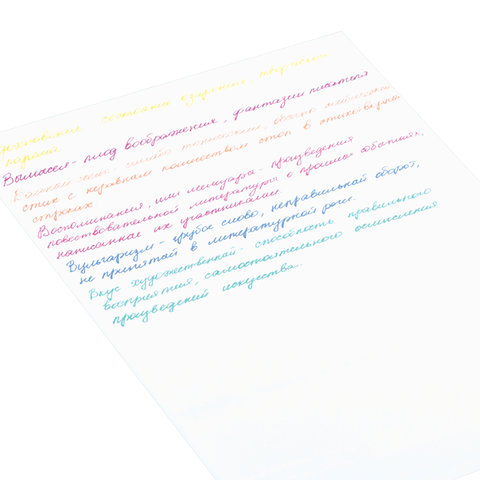 Вдохновение состояние озарения, творческий
подъём
Вымысел- плод воображения, фантазии писателя
стих с неравным количеством стоп в стихотворных
строках
Воспоминания, или мемуары- произведения
повествовательной литературы о прошлых событиях,
написанные их участниками.
Вульгаризм- грубое слово, неправильный оборот,
не принятый в литературной речи.
Вкус художественный- способность правильного
восприятия, самостоятельного осмысления
произведений искусства.